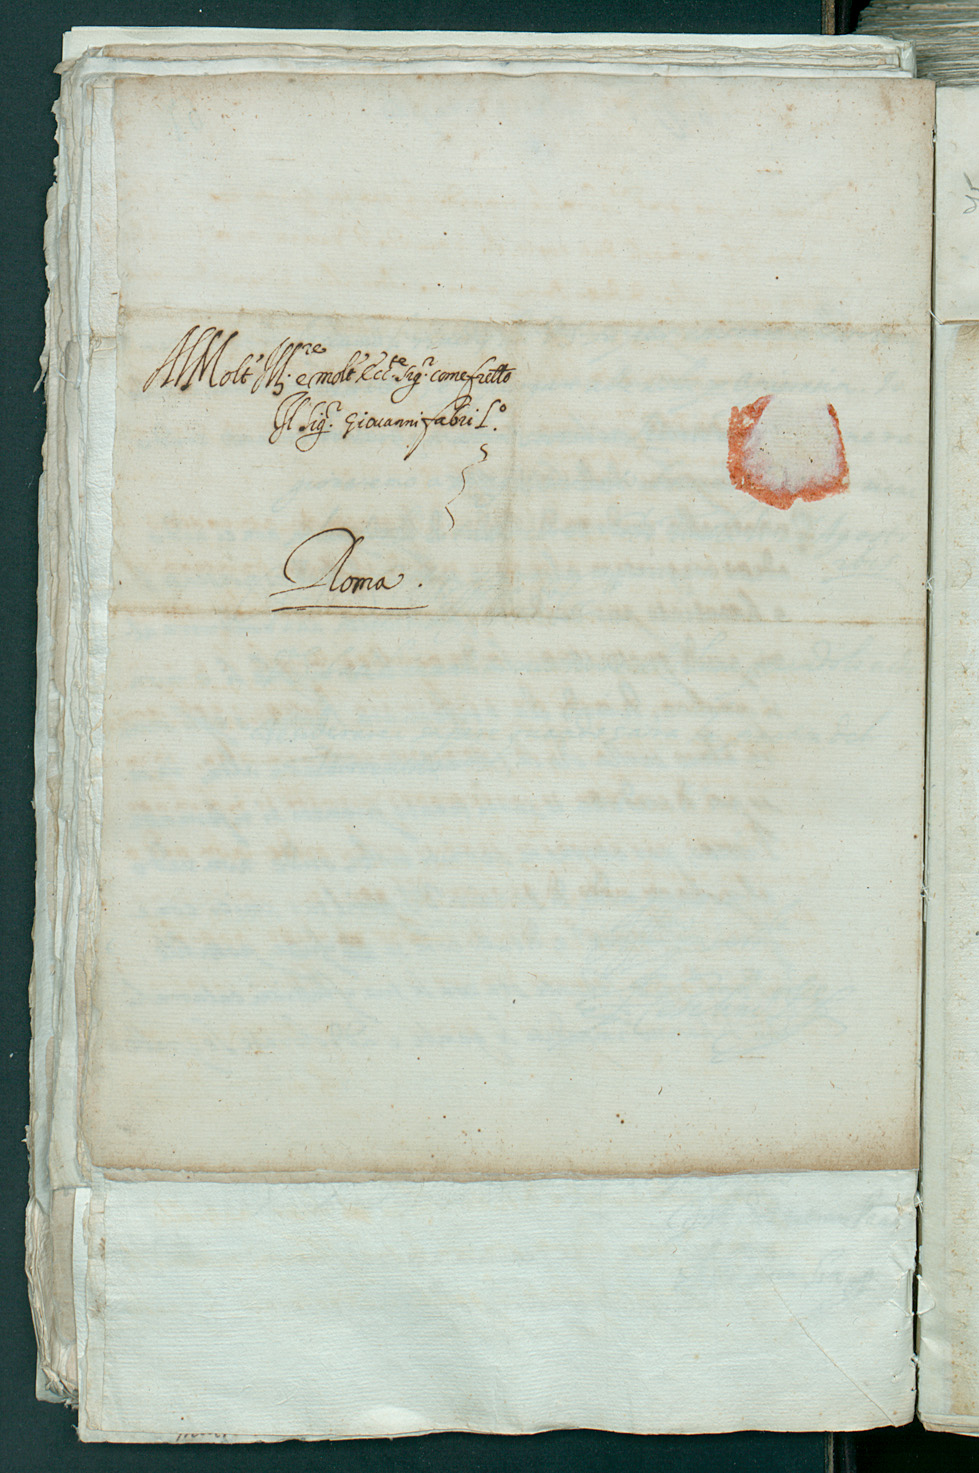 Al Molt' Ill.re e molt' Ecc.te Sig.r come fr̃ello
Il Sig.r Giovanni fabri L.o
Roma.